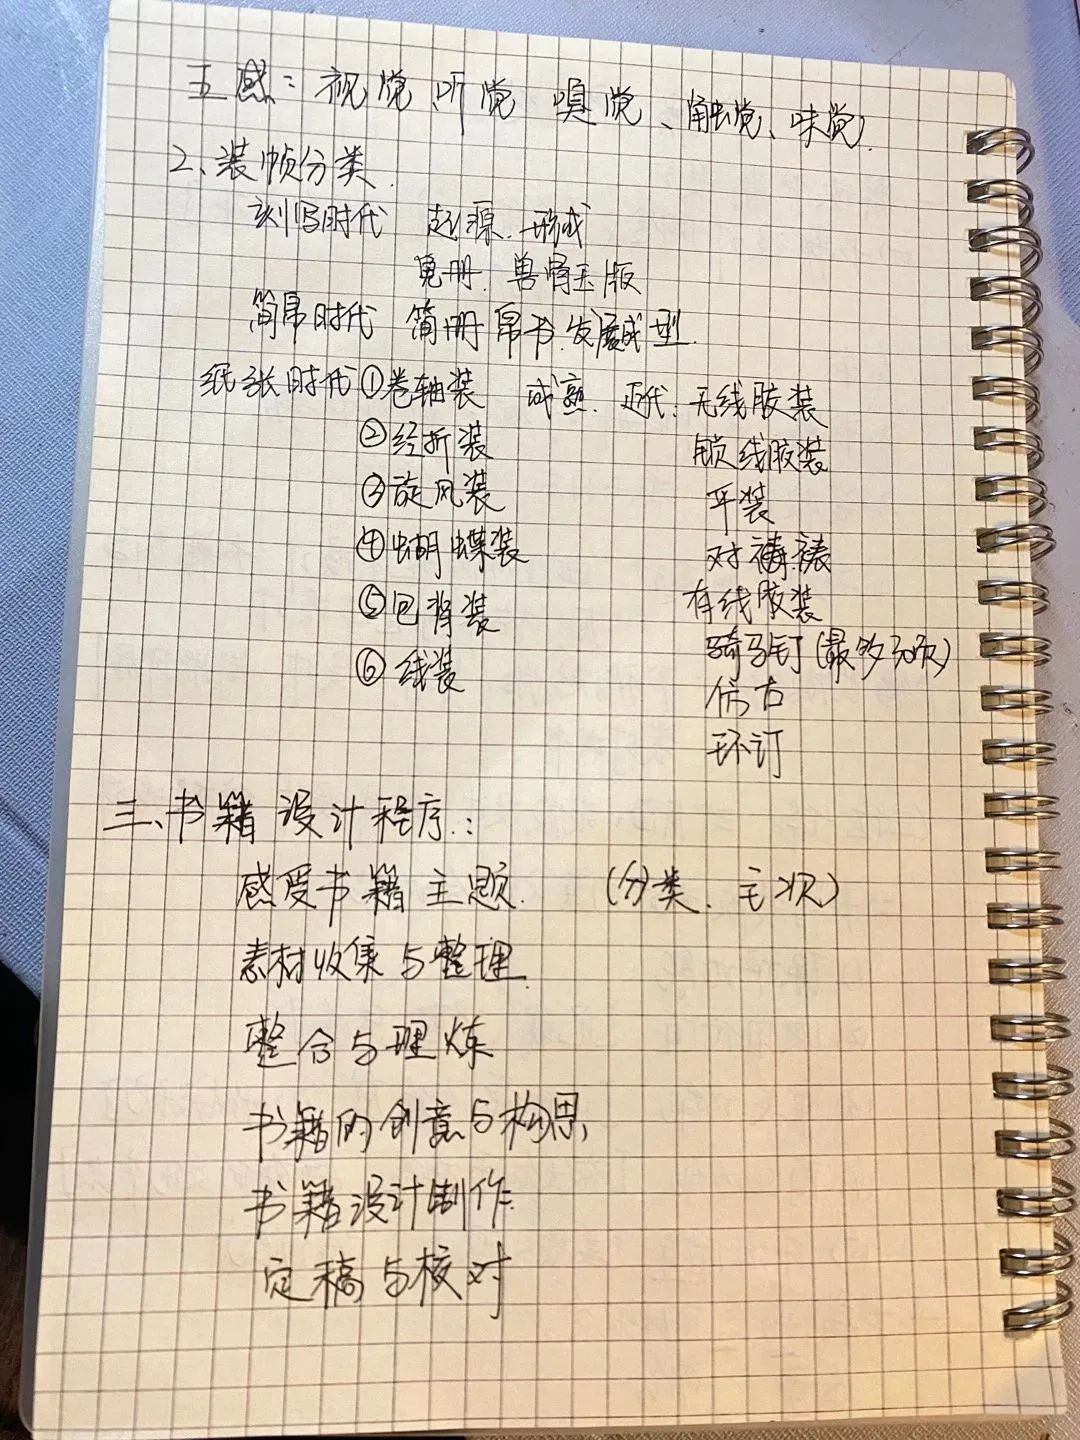 五感：视觉 听觉 嗅觉、触觉、味觉
2、装帧分类.
刻写时代 起源.形成
册.兽骨玉版
简帛时代 简册 帛书.发展成型.
纸张时代①卷轴装 成熟. 近代:无线胶装
②经折装 锁线胶装
③旋风装 平装
④蝴蝶装 对裱
⑤包背装 有线胶装
⑥线装 骑马钉(最多30页)
仿古
环订
三、书籍设计程序：
感受书籍主题. (分类、主次)
素材收集与整理.
整合与理炼
书籍的创意与构思,
书籍设计制作.
定稿与核对